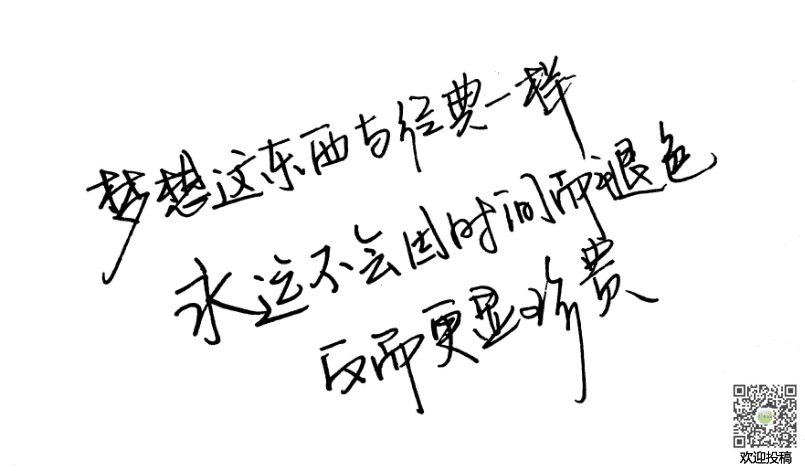 梦想这东西与经典一样
永远不会因时间而退色
反而更显珍贵
欢迎投稿